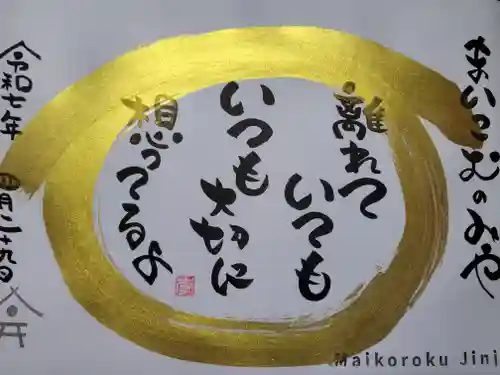 まいこむのみや
離れて
いても
いつも
大切に
想ってるよ
令和七年 四月二十九日
Maikoroku Jini